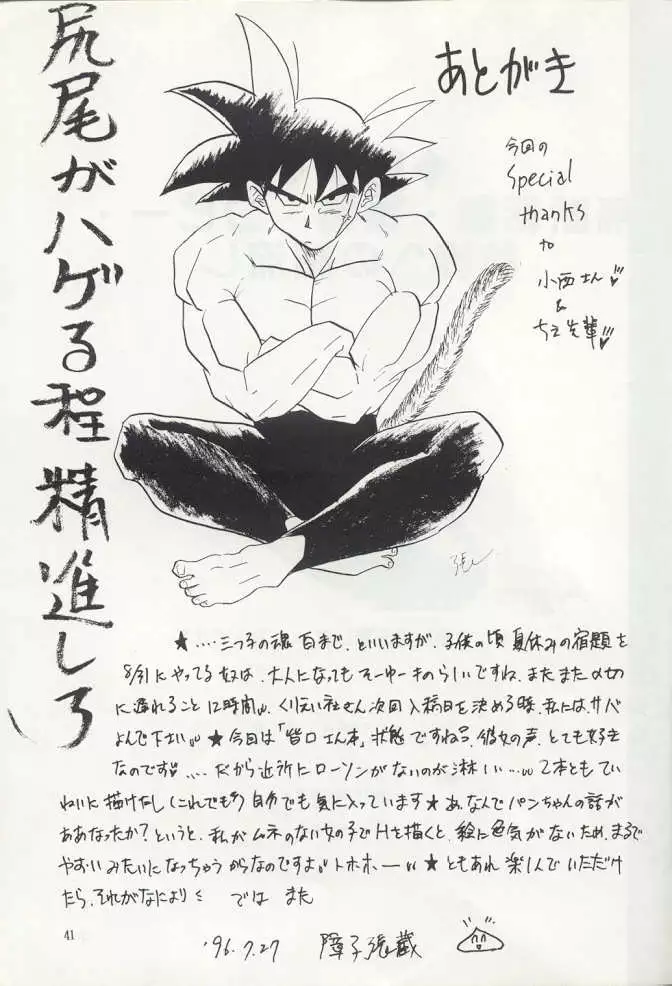 尻尾がハゲる程精進しろ
あとがき
今回の
Special
thanks
to
小西さん
&
ちえ先輩
★‥‥三つ子の魂百まで、といいますが、子供の頃夏休みの宿題を
8/31にやってる奴は、大人になってもそーゆーものらしいですね。またまた〆切
に遅れること12時間。くりえい社さん次回入稿日を決める時、私にはサバ
よんで下さい。★今回は「皆口さん本」状態ですね。彼女の声、とても好き
なのです。‥‥だから近所にローソンがないのが淋しい‥‥2本ともてい
ねいに描けたし(これでも)自分でも気に入っています★あ、なんでパンちゃんの話が
ああなったか?というと、私がムネのない女の子でHを描くと、絵に色気がないため、まるで
やおいみたいになっちゃうからなのですよ。トホホー ★ともあれ楽しんでいただけ
たら、それがなにより では また
41
'96.7.27 障子張蔵